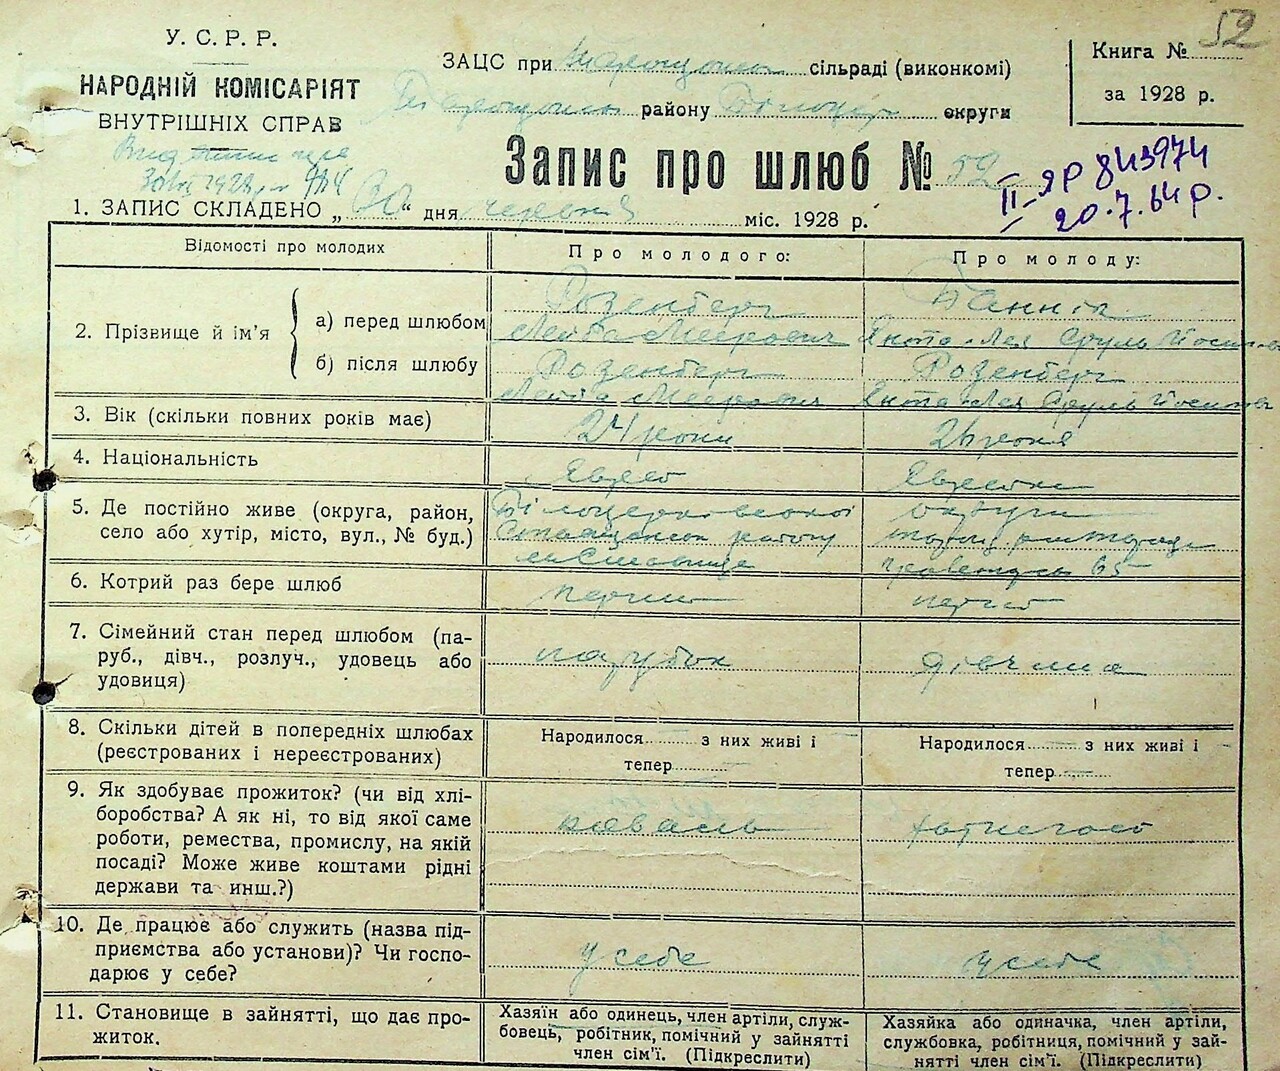 52
У. С. Р. Р.
НАРОДНІЙ КОМІСАРІЯТ
ВНУТРІШНІХ СПРАВ
ЗАЦС при сільраді (виконкомі)
району округи
Книга №
за 1928 р.
Запис про шлюб № 52
II-ЯР 843974
20.7.64 р.
1. ЗАПИС СКЛАДЕНО „30“ дня червня міс. 1928 р.
Відомості про молодих
Про молодого:
Про молоду:
2. Прізвище й ім'я
а) перед шлюбом
Розенберг
Лейба Меерович
Банник
Лея Сруль
б) після шлюбу
Розенберг
Лейба Меерович
Розенберг
Лея Сруль
3. Вік (скільки повних років має)
24 роки
26 років
4. Національність
Єврей
Єврейка
5. Де постійно живе (округа, район,
село або хутір, місто, вул., № буд.)
Білоцерковської
округи
району
м. Ставище
65
6. Котрий раз бере шлюб
перший
перший
7. Сімейний стан перед шлюбом (па-
руб., дівч., розлуч., удовець або
удовиця)
парубок
дівчина
8. Скільки дітей в попередніх шлюбах
(реєстрованих і нереєстрованих)
Народилося з них живі і
тепер
Народилося з них живі і
тепер
9. Як здобуває прожиток? (чи від хлі-
боробства? А як ні, то від якої саме
роботи, ремества, промислу, на якій
посаді? Може живе коштами рідні
держави та инш.?)
коваль
10. Де працює або служить (назва під-
приємства або установи)? Чи госпо-
дарює у себе?
у себе
у себе
11. Становище в зайнятті, що дає про-
житок.
Хазяїн або одинець, член артіли, служ-
бовець, робітник, помічний у зайнятті
член сім'ї. (Підкреслити)
Хазяйка або одиначка, член артіли,
службовка, робітниця, помічний у зай-
нятті член сім'ї. (Підкреслити)